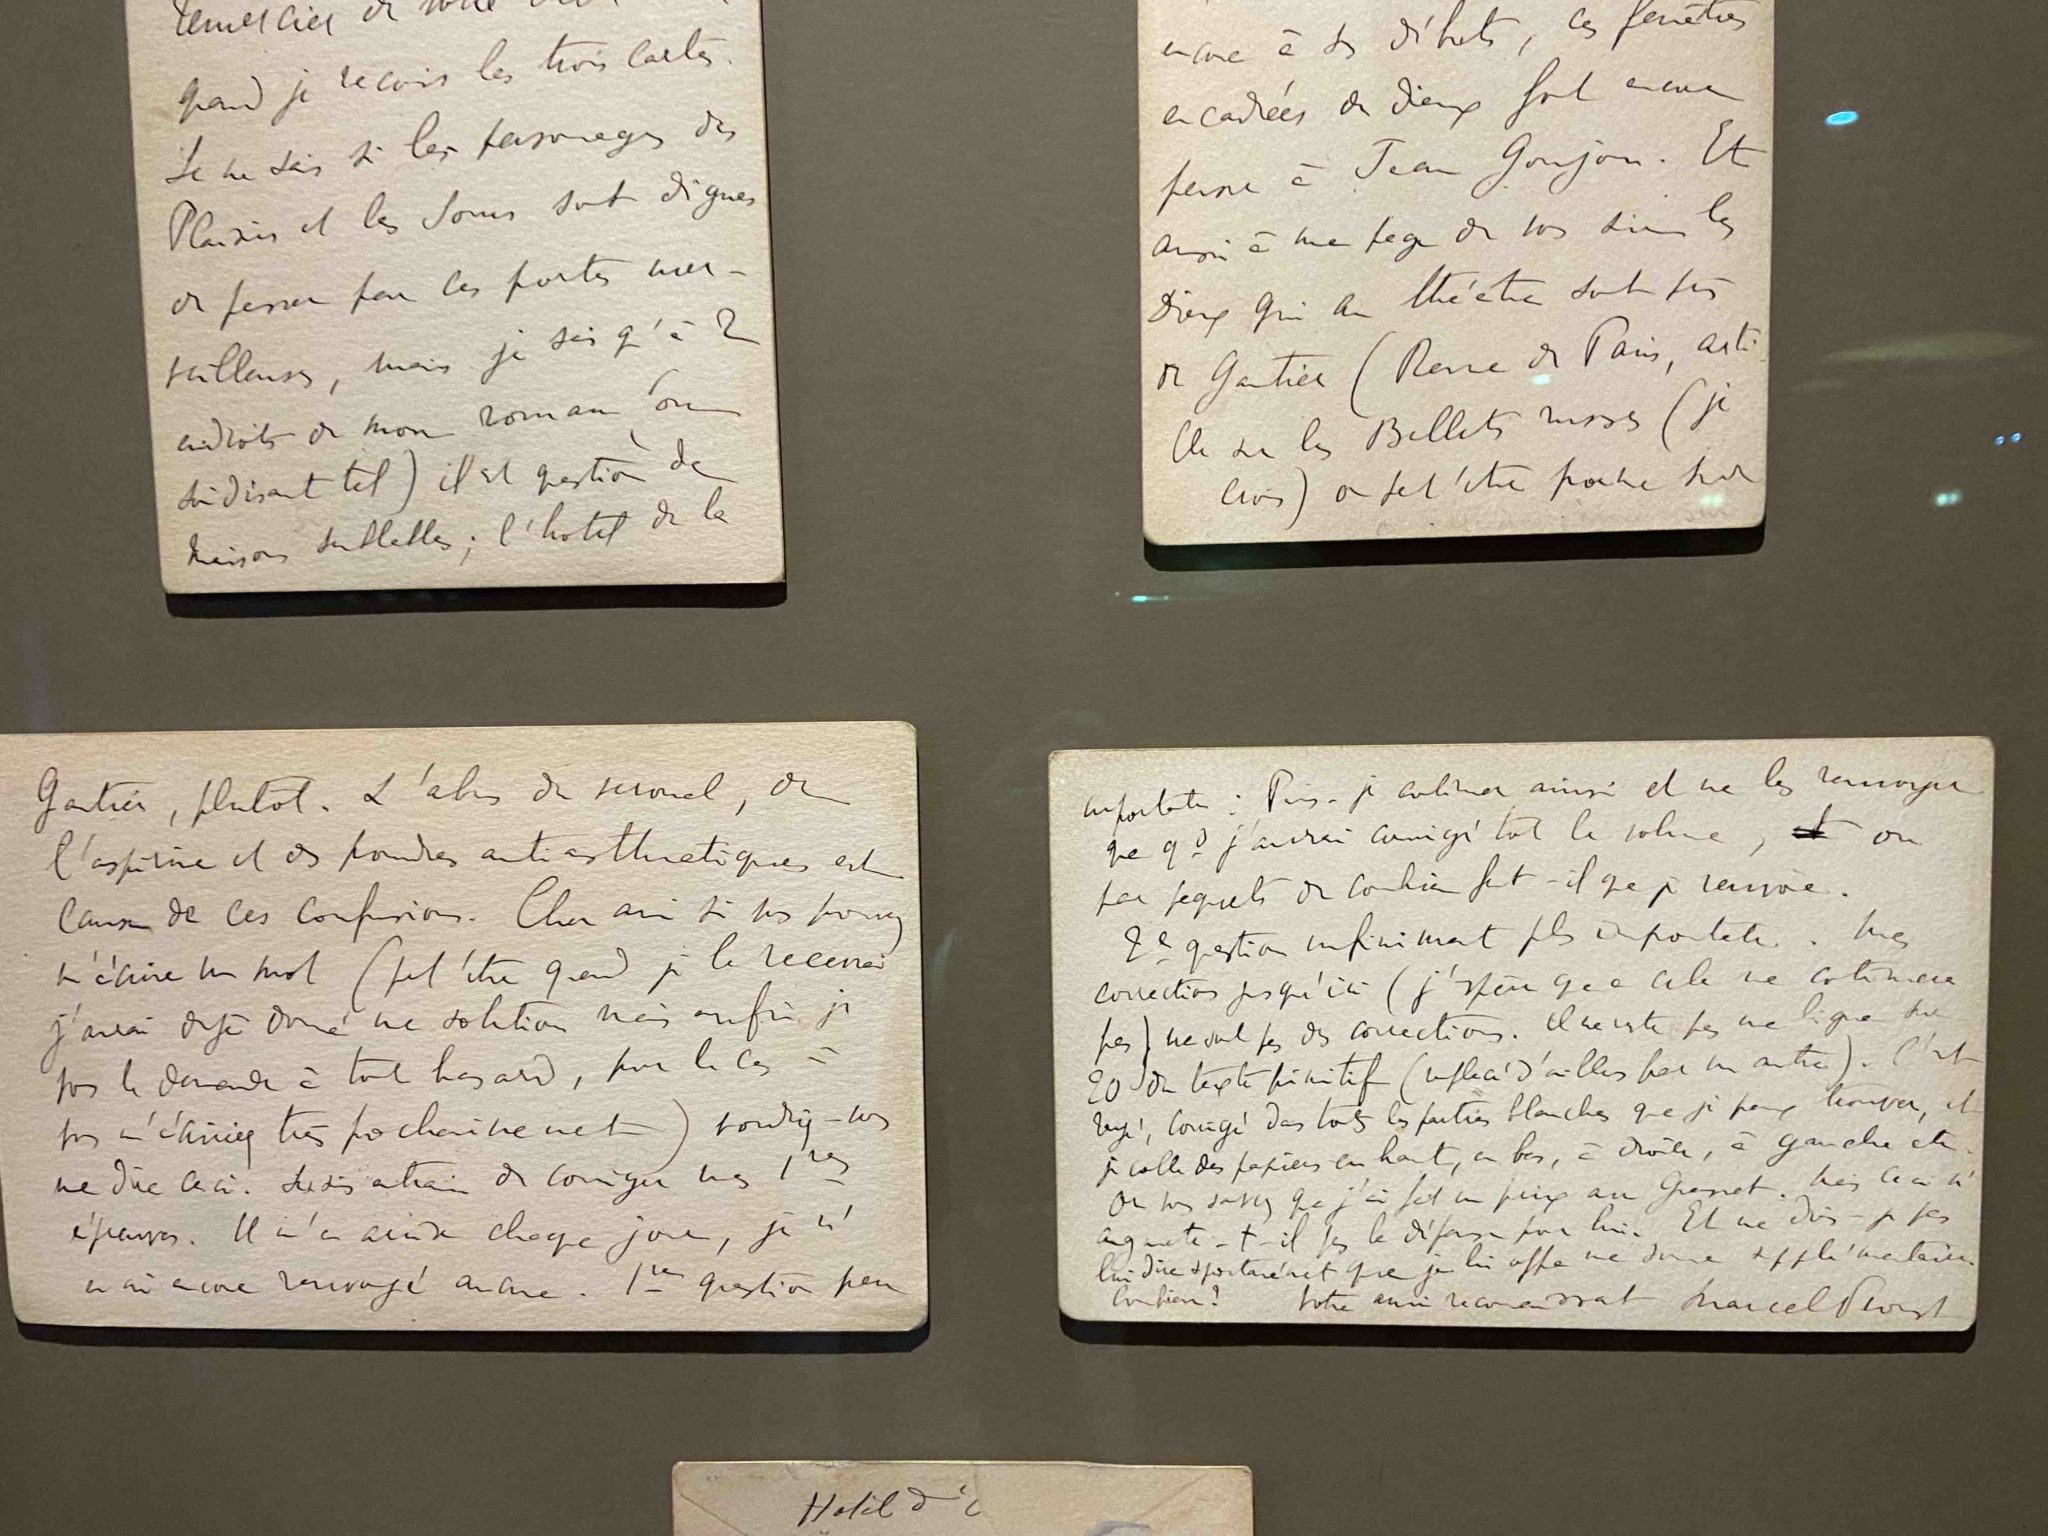 remercier de votre
quand je reçois les trois cartes.
Je ne sais si les personnages des
Plaisirs et les Jours sont dignes
de passer par ces portes mer-
veilleuses, mais je sais qu'à 2
endroits de mon roman (ou
soi disant tel) il est question de
maisons semblables ; l'hotel de la
encore à ses débuts, ces fenêtres
encadrées de dieux font encore
penser à Jean Goujon. Et
ainsi à une page de vous sur les
Dieux qui au théâtre sont
de Gautier (Revue de Paris, arti
cle sur les Ballets russes (je
crois) ou peut'être poème sur
Gautier, plutôt. L'abus du veronal, de
l'aspirine et des poudres antiasthmatiques est
cause de ces confusions. Cher ami si vous pouvez
m'écrire un mot (peut'être quand je le recevrai
j'aurai déjà donné une solution mais enfin je
vous le demande à tout hasard, pour le cas où
vous m'écririez très prochainement) voudriez-vous
me dire ceci. Je suis entrain de corriger mes 1res
épreuves. Il m'en arrive chaque jour, je n'
en ai encore renvoyé aucune. 1re question peu
importante : Puis-je continuer ainsi et ne les renvoyer
que qd j'aurai corrigé tout le volume, ou
par paquets de combien faut-il que je renvoie.
2e question infiniment plus importante. Mes
corrections jusqu'ici (j'espère que cela ne continuera
pas) ne sont pas des corrections. Il ne reste pas une ligne sur
20 du texte primitif (remplacé d'ailleurs par un autre). C'est
rayé, corrigé dans toutes les parties blanches que je peux trouver, et
je colle des papiers en haut, en bas, à droite, à gauche etc.
Or vous savez que j'ai fait un prix avec Grasset. Mais ceci n'
augmente-t-il pas la dépense pour lui. Et ne dois-je pas
lui dire spontanément que je lui offre une somme supplémentaire
combien? Votre ami reconnaissant Marcel Proust
Hotel d'